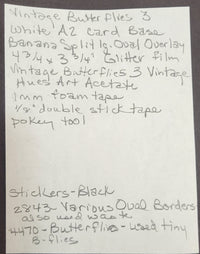 Vintage Butterflies 3
White A2 Card Base
Banana Split lg. Oval Overlay
4 3/4 x 3 3/4" Glitter Film
Vintage Butterflies 3 Vintage
Hues Art Acetate
1mm foam tape
1/8" double stick tape
pokey tool
Stickers-Black
2843- Various Oval Borders
also used waste
4470-Butterflies-used tiny
B-flies